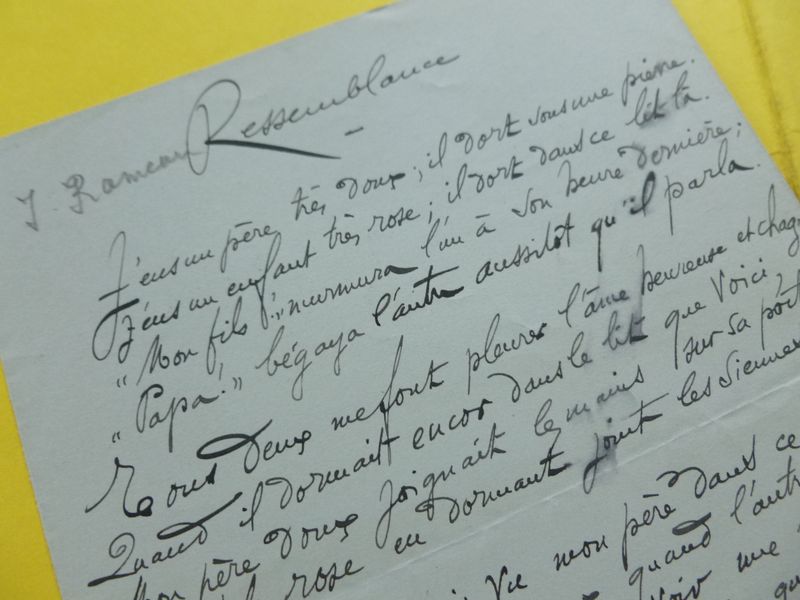 Ressemblance
J. Rameau
J'eus un père très doux ; il dort sous une pierre.
J'eus un enfant très rose ; il dort dans ce lit là.
"Mon fils !" murmura l'un à son heure dernière ;
"Papa !" bégaya l'autre aussitôt qu'il parla.
Tous deux me font pleurer l'âme heureuse et chag
Quand il dormait encor dans le lit que voici,
Mon père doux joignait les mains sur sa poit
rose en dormant joint les siennes
vu mon père dans ce
quand l'autr
voir une